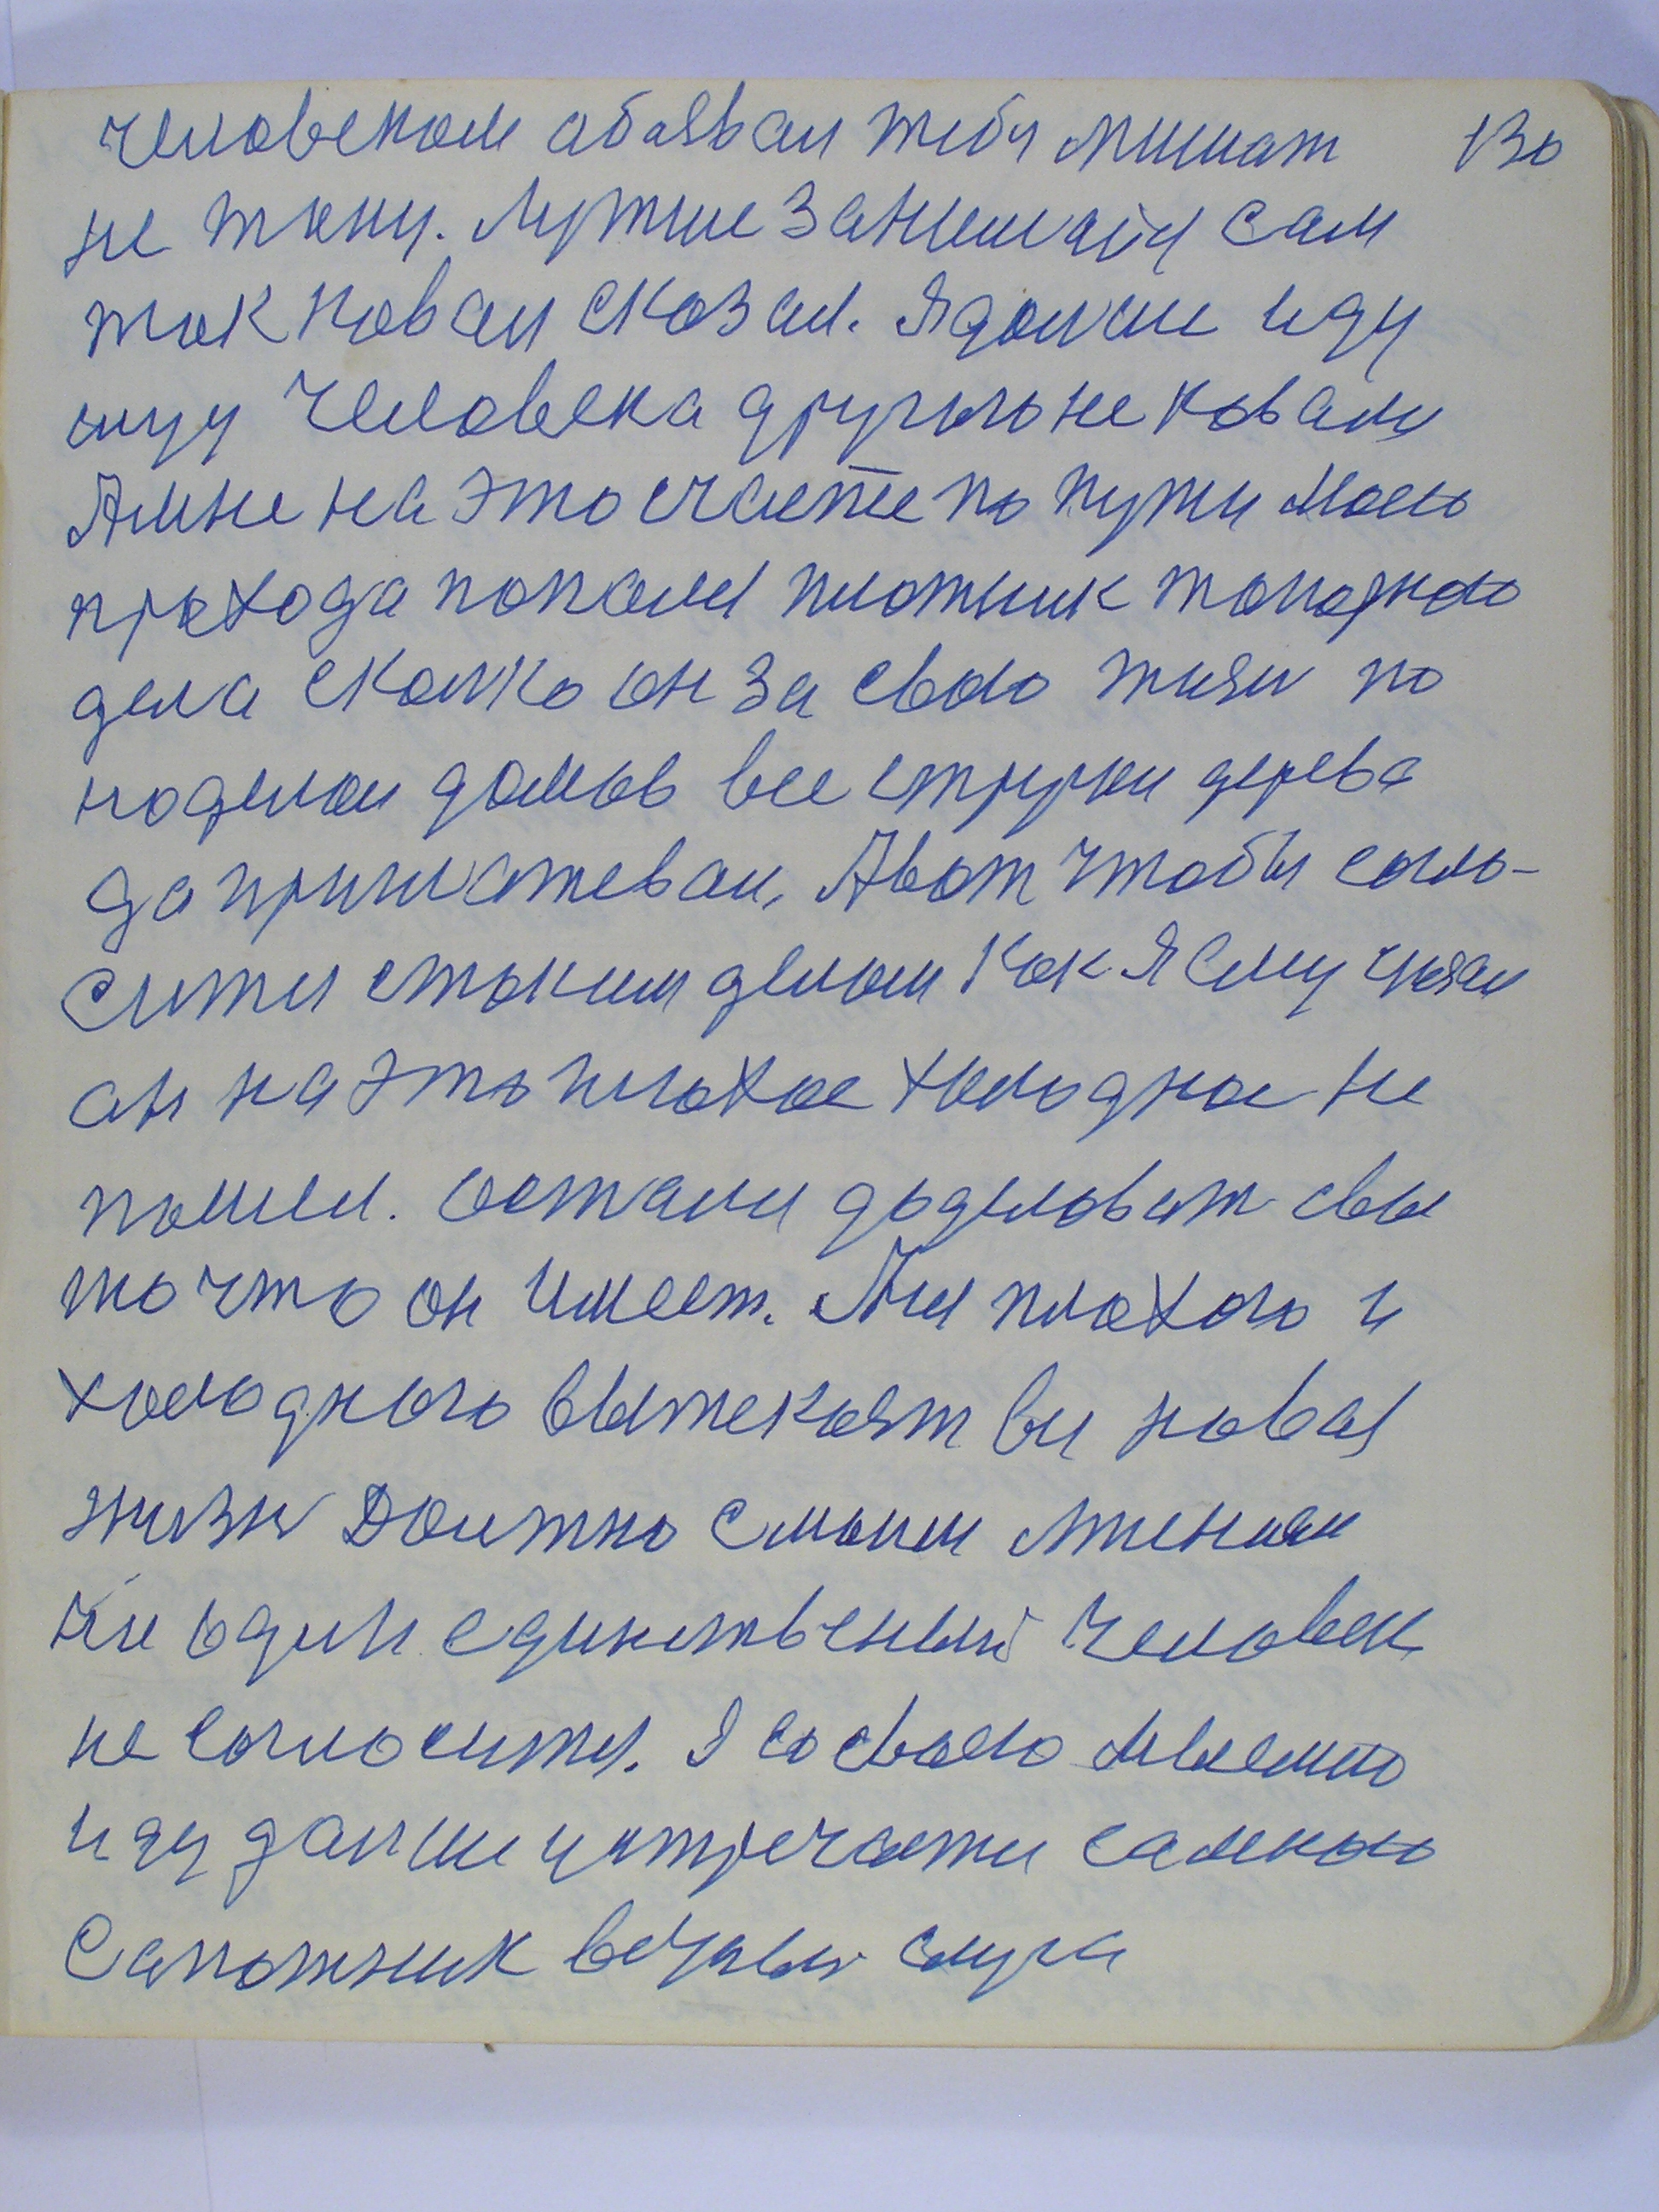 человеком абаявал тебя мишат 130
не тану. Лутше занемайся сам
так коваль сказал. Я дольше иду
ищу человека другого не коваля
А мне на это счастье по пути моего
прохода попался плотник топорного
дела сколко он за свою жизн по
поделал домов все стругал дерева
да пришатевал, А вот чтобы согло-
ситися таким делом как я ему указал
он на это плохое холодное не
пошел. Остался доделоват свое
то что он имеет. А из плохого и
холодного вытекает ви новая
жизн Должно с моим мнением
ни один единственный человек
не соглоситя. Я со своею мыслию
иду дальше устречается со мною
Сапожник вечный слуга